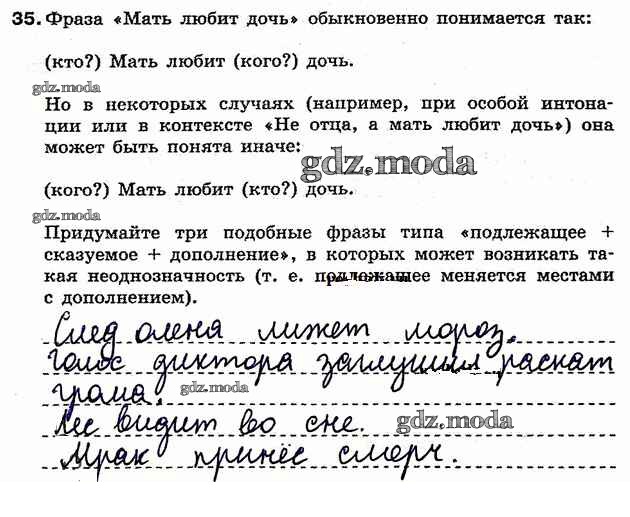 35. Фраза «Мать любит дочь» обыкновенно понимается так:
(кто?) Мать любит (кого?) дочь.
gdz.moda
Но в некоторых случаях (например, при особой интона-
ции или в контексте «Не отца, а мать любит дочь») она
может быть понята иначе:
gdz.moda
(кого?) Мать любит (кто?) дочь.
gdz.moda
Придумайте три подобные фразы типа «подлежащее +
сказуемое + дополнение», в которых может возникать та-
кая неоднозначность (т. е. подлежащее меняется местами
с дополнением).
След оленя лижет мороз.
Голос диктора заглушил раскат
грома.
gdz.moda
Лес видит во сне.
gdz.moda
Мрак принёс смерч.